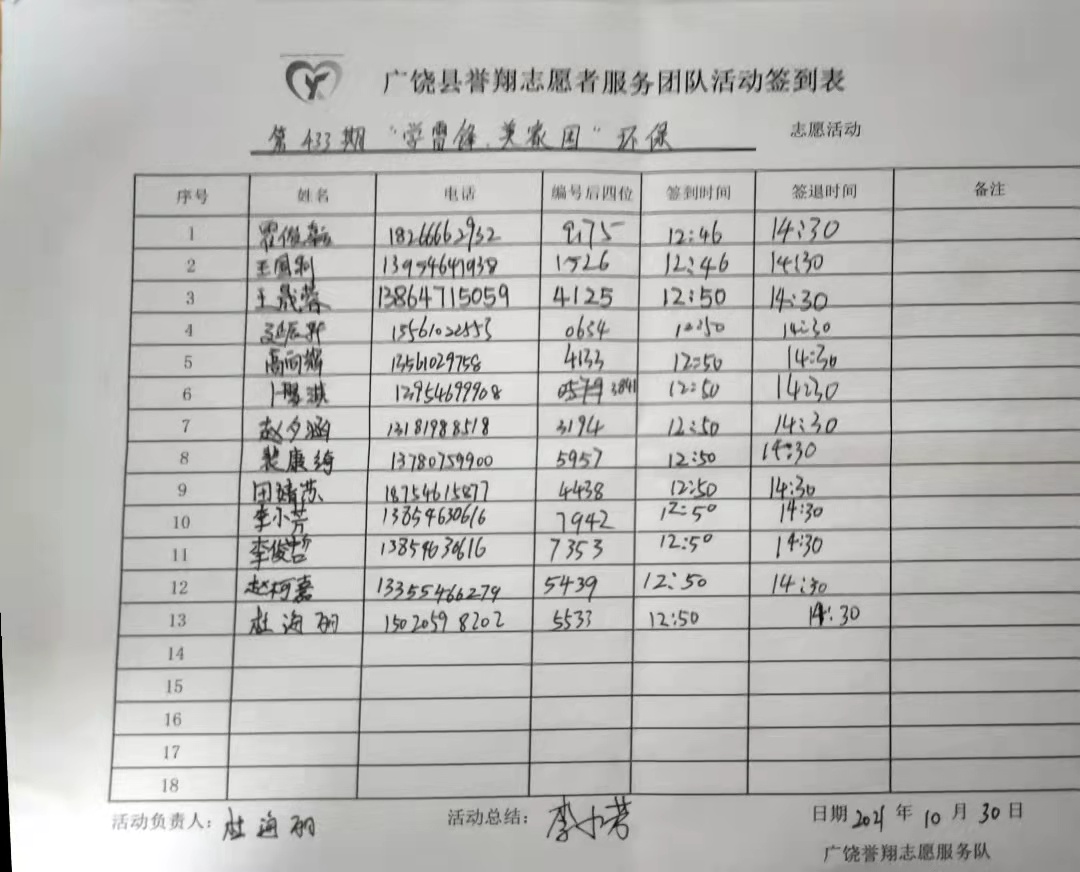 广饶县誉翔志愿者服务团队活动签到表
第433期 "学雷锋、美家园" 环保 志愿活动
序号 姓名 电话 编号后四位 签到时间 签退时间 备注
1 18266662932 9175 12:46 14:30
2 王国利 13954641938 1526 12:46 14:30
3 王晟蓉 13864715059 4125 12:50 14:30
4 15561022553 0654 12:50 14:30
5 13561029758 4133 12:50 14:30
6 13954699908 3841 12:50 14:30
7 赵夕涵 13181988518 3194 12:50 14:30
8 裴康绮 13780759900 5957 12:50 14:30
9 田靖苏 18754615877 4438 12:50 14:30
10 李小芳 13854630616 7942 12:50 14:30
11 李俊哲 13854630616 7353 12:50 14:30
12 赵柯嘉 13355466279 5439 12:50 14:30
13 杜海丽 15020598202 5533 12:50 14:30
14
15
16
17
18
活动负责人: 杜海丽 活动总结: 李小芳 日期 2021 年 10 月 30 日
广饶誉翔志愿服务队